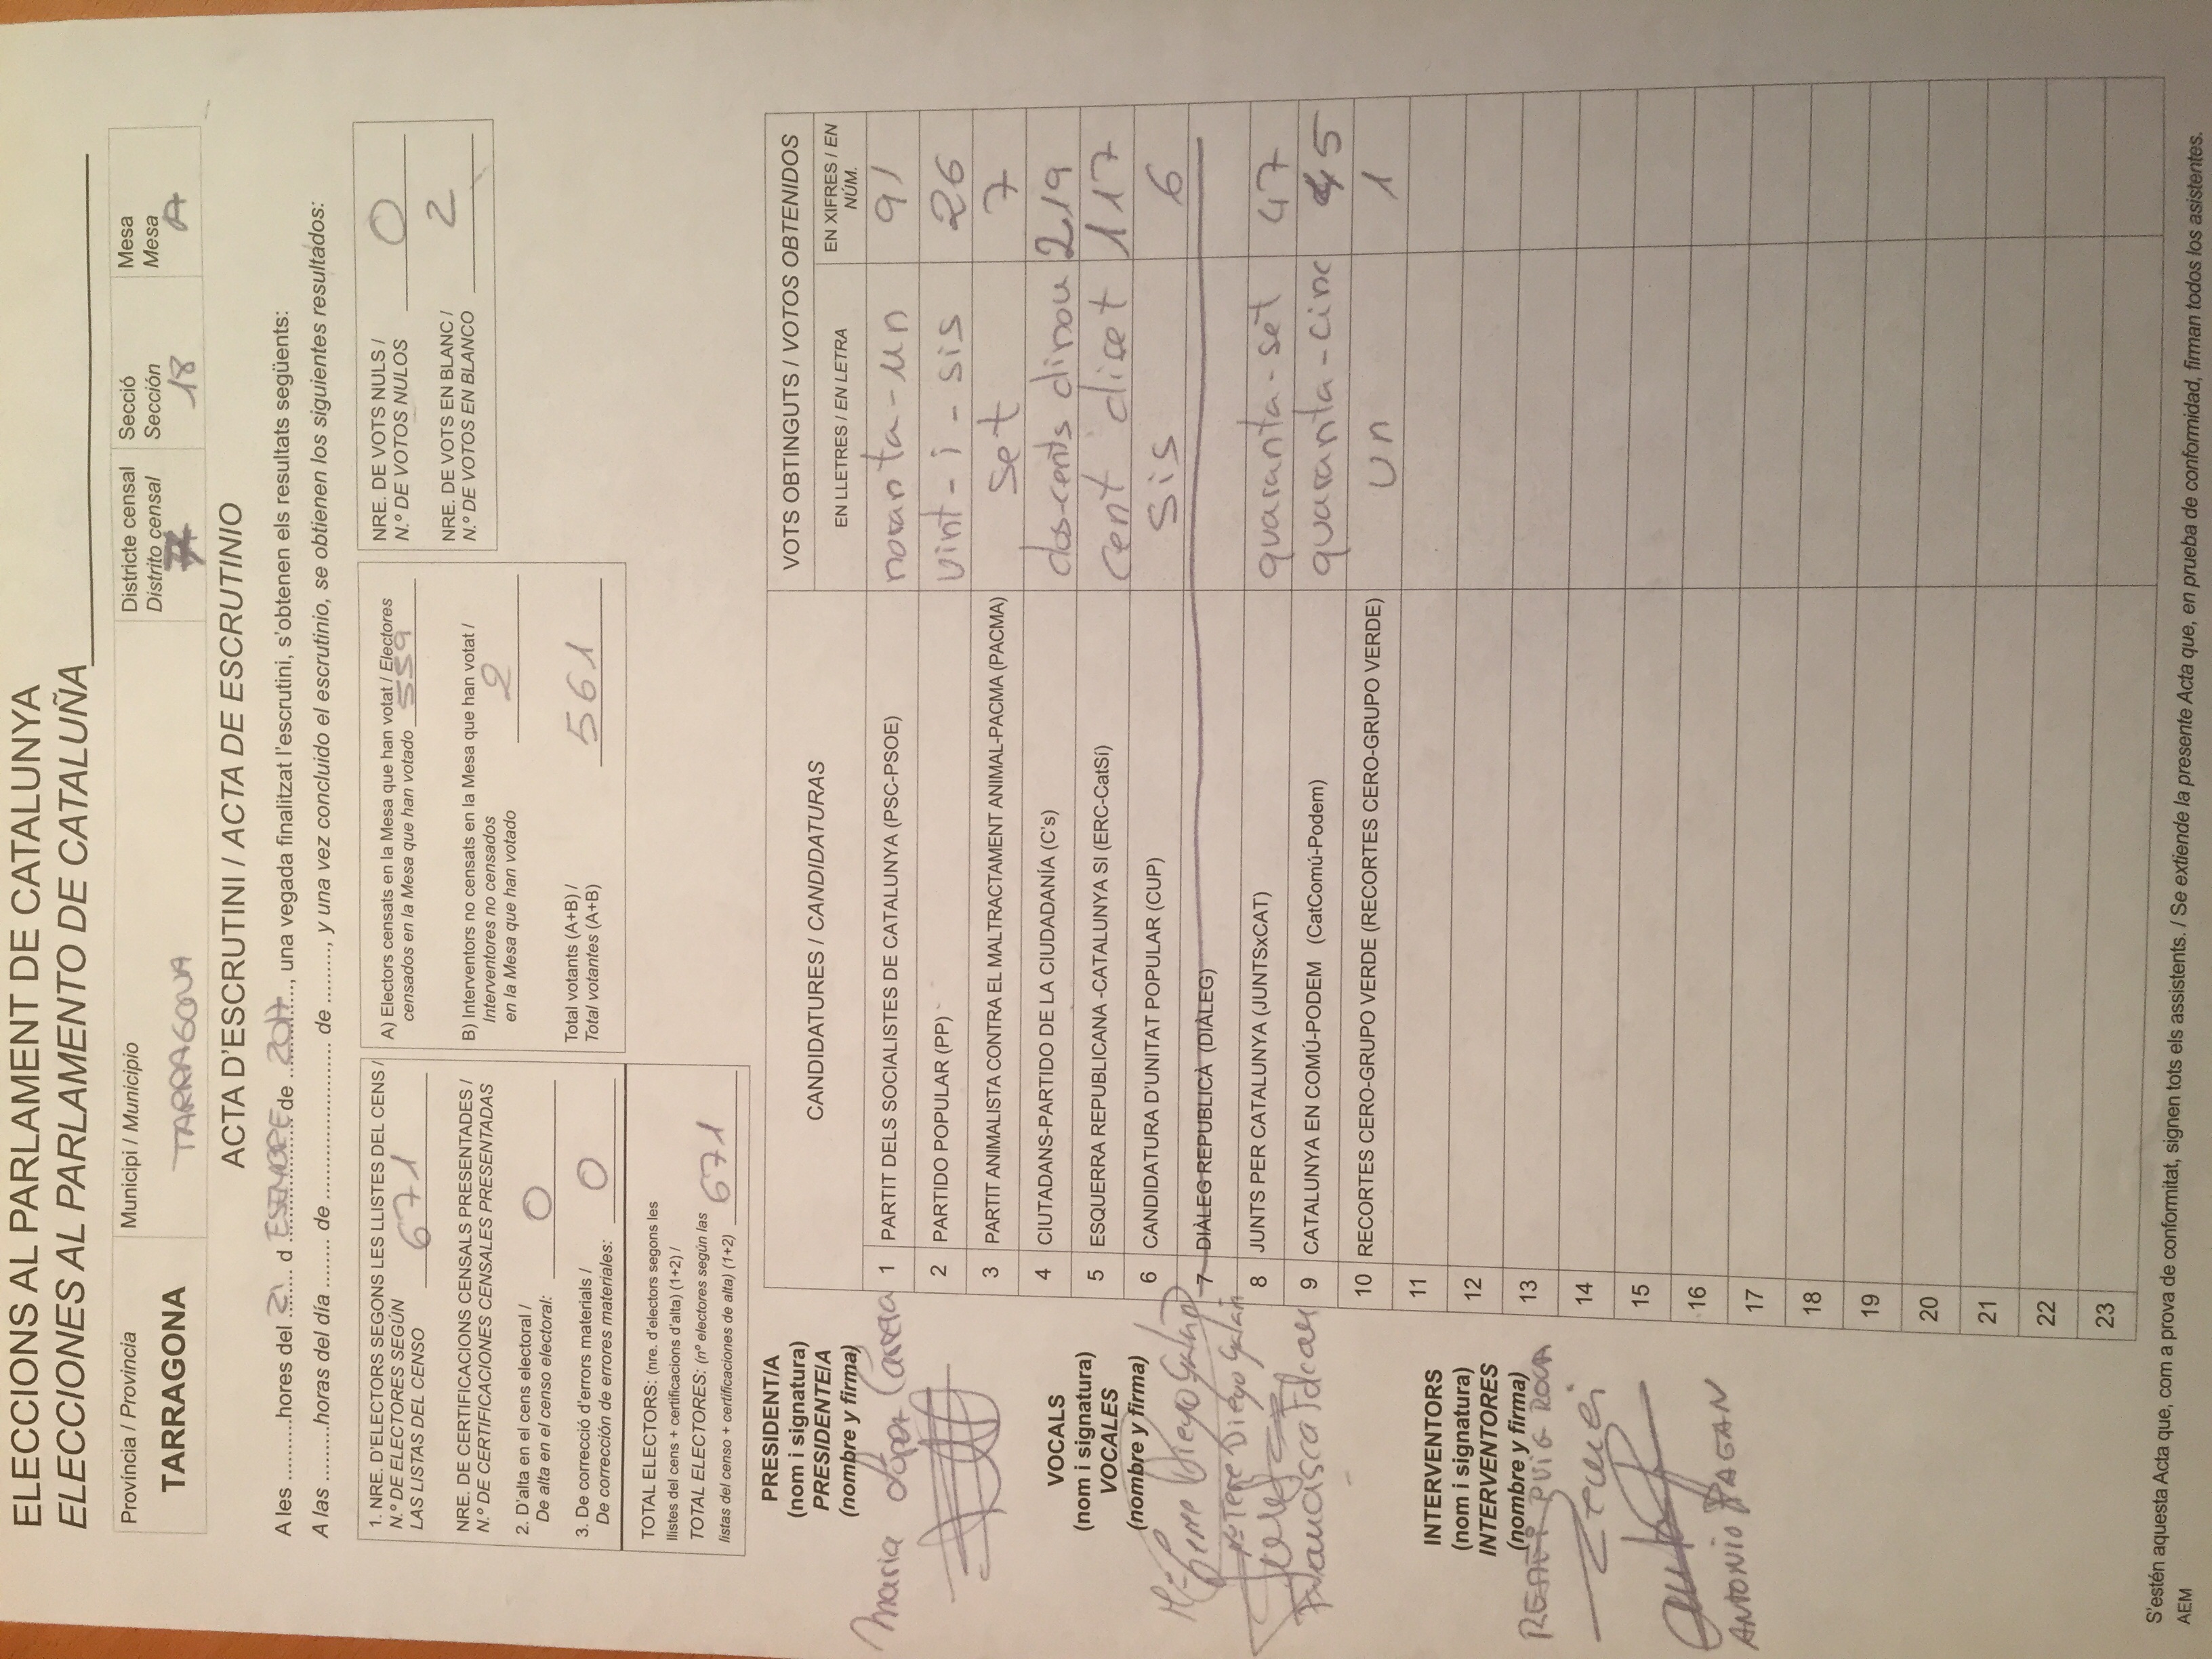 ELECCIONS AL PARLAMENT DE CATALUNYA
ELECCIONES AL PARLAMENTO DE CATALUÑA
Província / Provincia
TARRAGONA
Municipi / Municipio
TARRAGONA
Districte censal
Distrito censal
Secció
Sección
18
Mesa
Mesa
A
ACTA D'ESCRUTINI / ACTA DE ESCRUTINIO
A les ..........hores del 21 d ESEMBRE de 2017, una vegada finalitzat l'escrutini, s'obtenen els resultats següents:
A las .........horas del día ........ de .......................... de ........., y una vez concluido el escrutinio, se obtienen los siguientes resultados:
1. NRE. D'ELECTORS SEGONS LES LLISTES DEL CENS /
N.º DE ELECTORES SEGÚN
LAS LISTAS DEL CENSO 671
NRE. DE CERTIFICACIONS CENSALS PRESENTADES /
N.º DE CERTIFICACIONES CENSALES PRESENTADAS
2. D'alta en el cens electoral /
De alta en el censo electoral: 0
3. De correcció d'errors materials /
De corrección de errores materiales: 0
TOTAL ELECTORS: (nre. d'electors segons les
llistes del cens + certificacions d'alta) (1+2) /
TOTAL ELECTORES: (nº electores según las
listas del censo + certificaciones de alta) (1+2) 671
A) Electors censats en la Mesa que han votat / Electores
censados en la Mesa que han votado 559
B) Interventors no censats en la Mesa que han votat /
Interventores no censados
en la Mesa que han votado 2
Total votants (A+B) /
Total votantes (A+B) 561
NRE. DE VOTS NULS /
N.º DE VOTOS NULOS 0
NRE. DE VOTS EN BLANC /
N.º DE VOTOS EN BLANCO 2
PRESIDENT/A
(nom i signatura)
PRESIDENTE/A
(nombre y firma)
Maria López Carrera
VOCALS
(nom i signatura)
VOCALES
(nombre y firma)
Mª Tere Diego Galan
Mª Tere Diego Galan
Francisca
INTERVENTORS
(nom i signatura)
INTERVENTORES
(nombre y firma)
REMEI PUIG ROCA
Remei
ANTONIO PAGAN
CANDIDATURES / CANDIDATURAS
VOTS OBTINGUTS / VOTOS OBTENIDOS
EN LLETRES / EN LETRA
EN XIFRES / EN
NÚM.
1 PARTIT DELS SOCIALISTES DE CATALUNYA (PSC-PSOE) noranta-un 91
2 PARTIDO POPULAR (PP) vint-i-sis 26
3 PARTIT ANIMALISTA CONTRA EL MALTRACTAMENT ANIMAL-PACMA (PACMA) set 7
4 CIUTADANS-PARTIDO DE LA CIUDADANÍA (C's) dos-cents dinou 219
5 ESQUERRA REPUBLICANA -CATALUNYA SI (ERC-CatSí) cent diset 117
6 CANDIDATURA D'UNITAT POPULAR (CUP) sis 6
7 DIÀLEG REPUBLICÀ (DIÀLEG)
8 JUNTS PER CATALUNYA (JUNTSxCAT) quaranta-set 47
9 CATALUNYA EN COMÚ-PODEM (CatComú-Podem) quaranta-cinc 45
10 RECORTES CERO-GRUPO VERDE (RECORTES CERO-GRUPO VERDE) un 1
11
12
13
14
15
16
17
18
19
20
21
22
23
S'estén aquesta Acta que, com a prova de conformitat, signen tots els assistents. / Se extiende la presente Acta que, en prueba de conformidad, firman todos los asistentes.
AEM